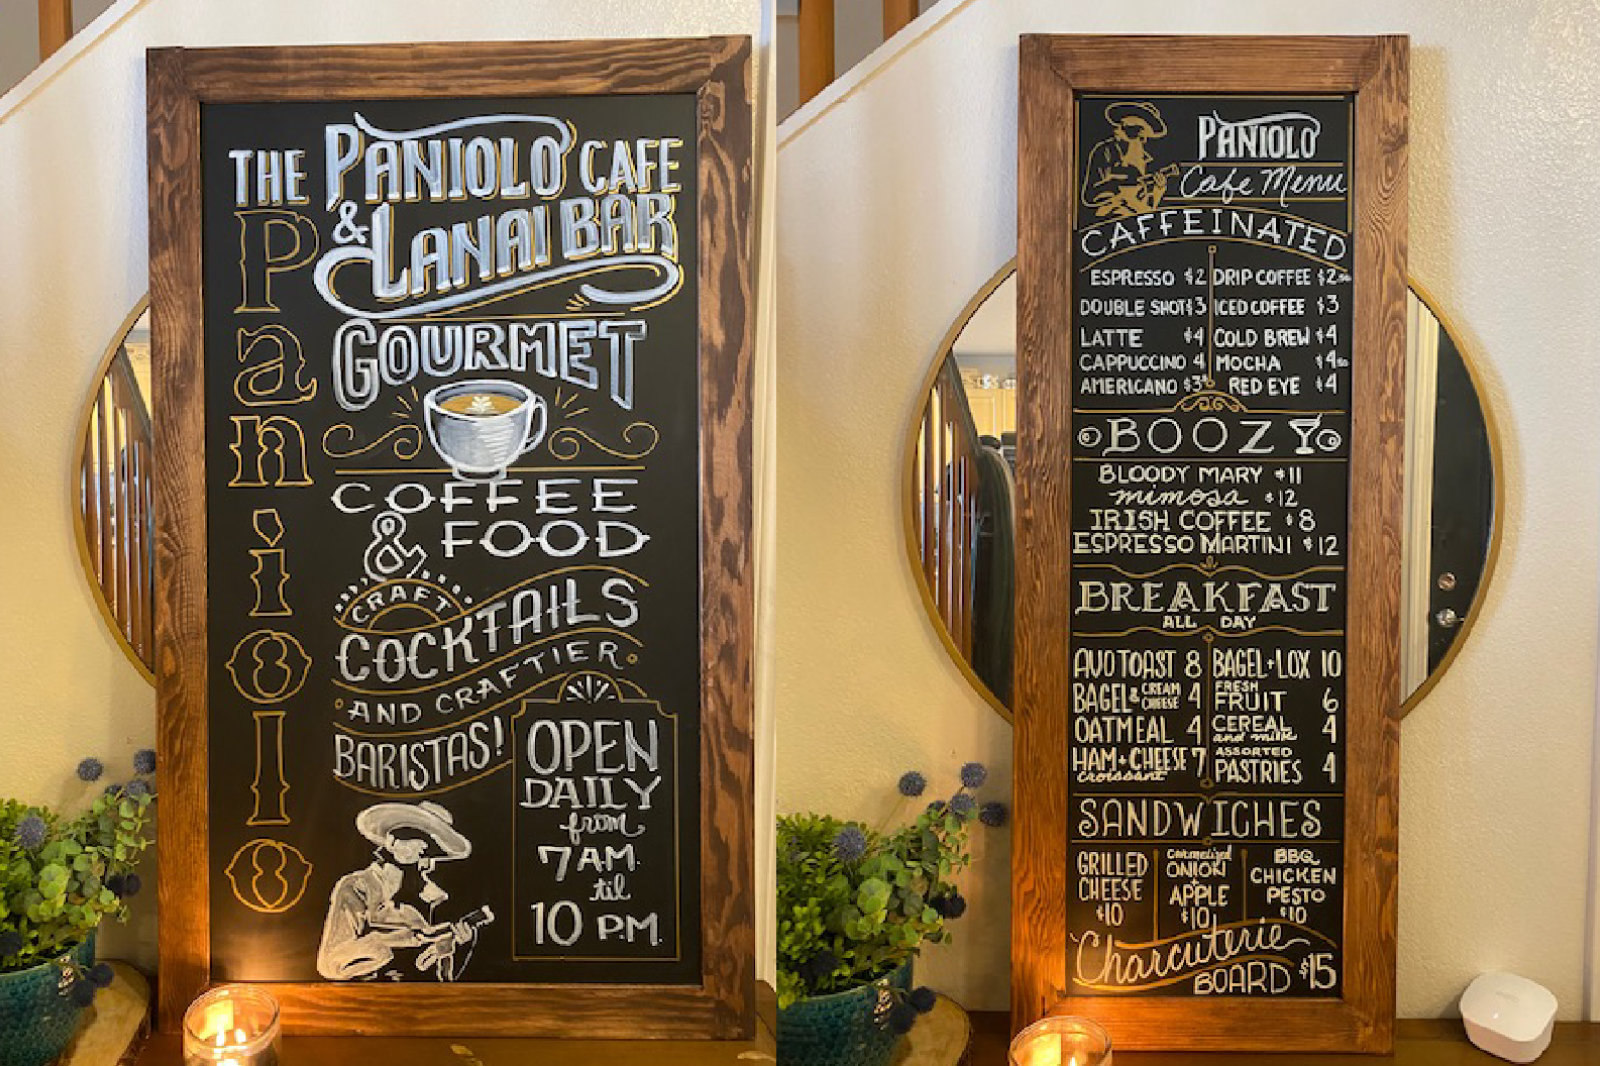 THE PANIOLO CAFE
& LANAI BAR
Paniolo
GOURMET
COFFEE
& FOOD
CRAFT
COCKTAILS
AND CRAFTIER
BARISTAS!
OPEN
DAILY
from
7 AM.
til
10 P.M.
PANIOLO
Cafe Menu
CAFFEINATED
ESPRESSO $2 DRIP COFFEE $2.50
DOUBLE SHOT $3 ICED COFFEE $3
LATTE $4 COLD BREW $4
CAPPUCCINO 4 MOCHA $4.50
AMERICANO $3 RED EYE $4
BOOZY
BLOODY MARY $11
mimosa $12
IRISH COFFEE $8
ESPRESSO MARTINI $12
BREAKFAST
ALL DAY
AVO TOAST 8 BAGEL + LOX 10
BAGEL & CREAM CHEESE 4 FRESH FRUIT 6
OATMEAL 4 CEREAL and milk 4
HAM + CHEESE croissant 7 ASSORTED PASTRIES 4
SANDWICHES
GRILLED
CHEESE
$10
Caramelized
ONION
+
APPLE
$10
BBQ
CHICKEN
PESTO
$10
Charcuterie
BOARD $15